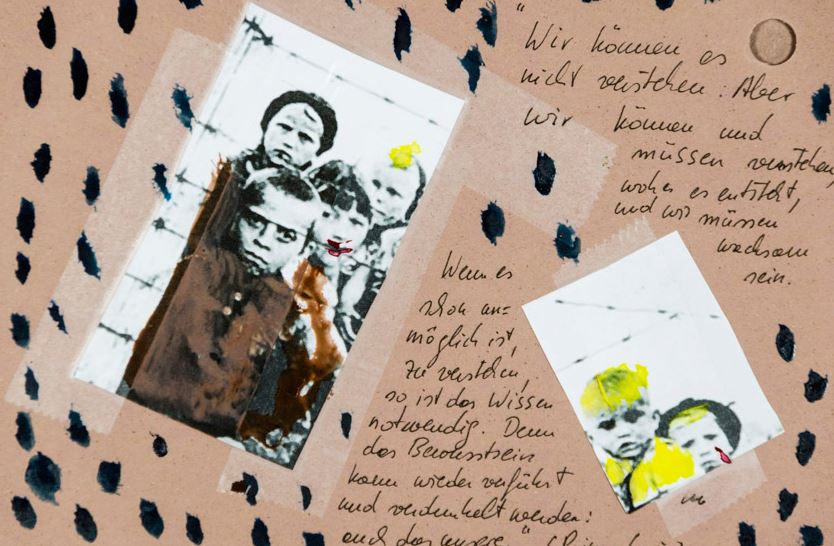 "Wir können es
nicht verstehen. Aber
wir können und
müssen verstehen,
woher es entsteht,
und wir müssen
wachsam
sein.
Wenn es
schon un=
möglich ist,
zu verstehen,
so ist das Wissen
notwendig. Denn
das Bewusstsein
kann wieder verführt
und verdunkelt werden:
auch das unsere"